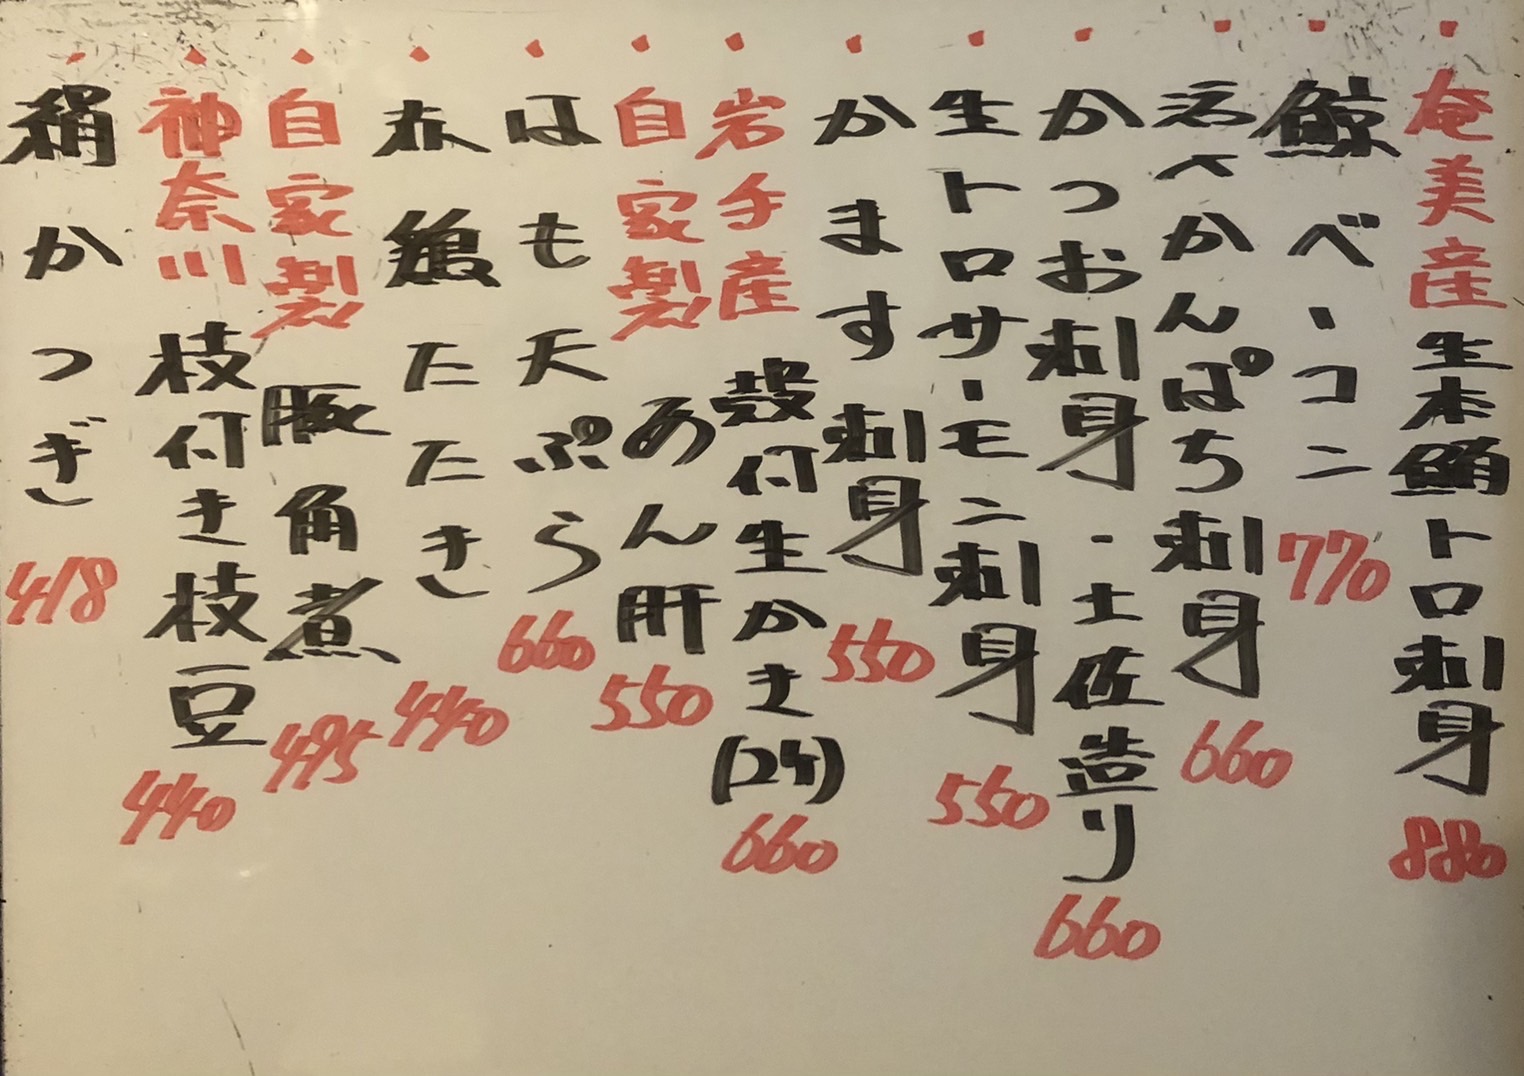 ・奄美産 生本鮪トロ刺身 880
・鯨ベーコン 770
・活〆かんぱち刺身 660
・かつお刺身・土佐造り 660
・生トロサーモン刺身 550
・かます刺身 550
・岩手産 殻付生かき(2ケ) 660
・自家製 あん肝 550
・はも天ぷら 660
・赤鶏たたき 440
・自家製 豚角煮 495
・神奈川 枝付き枝豆 440
・絹かつぎ 418